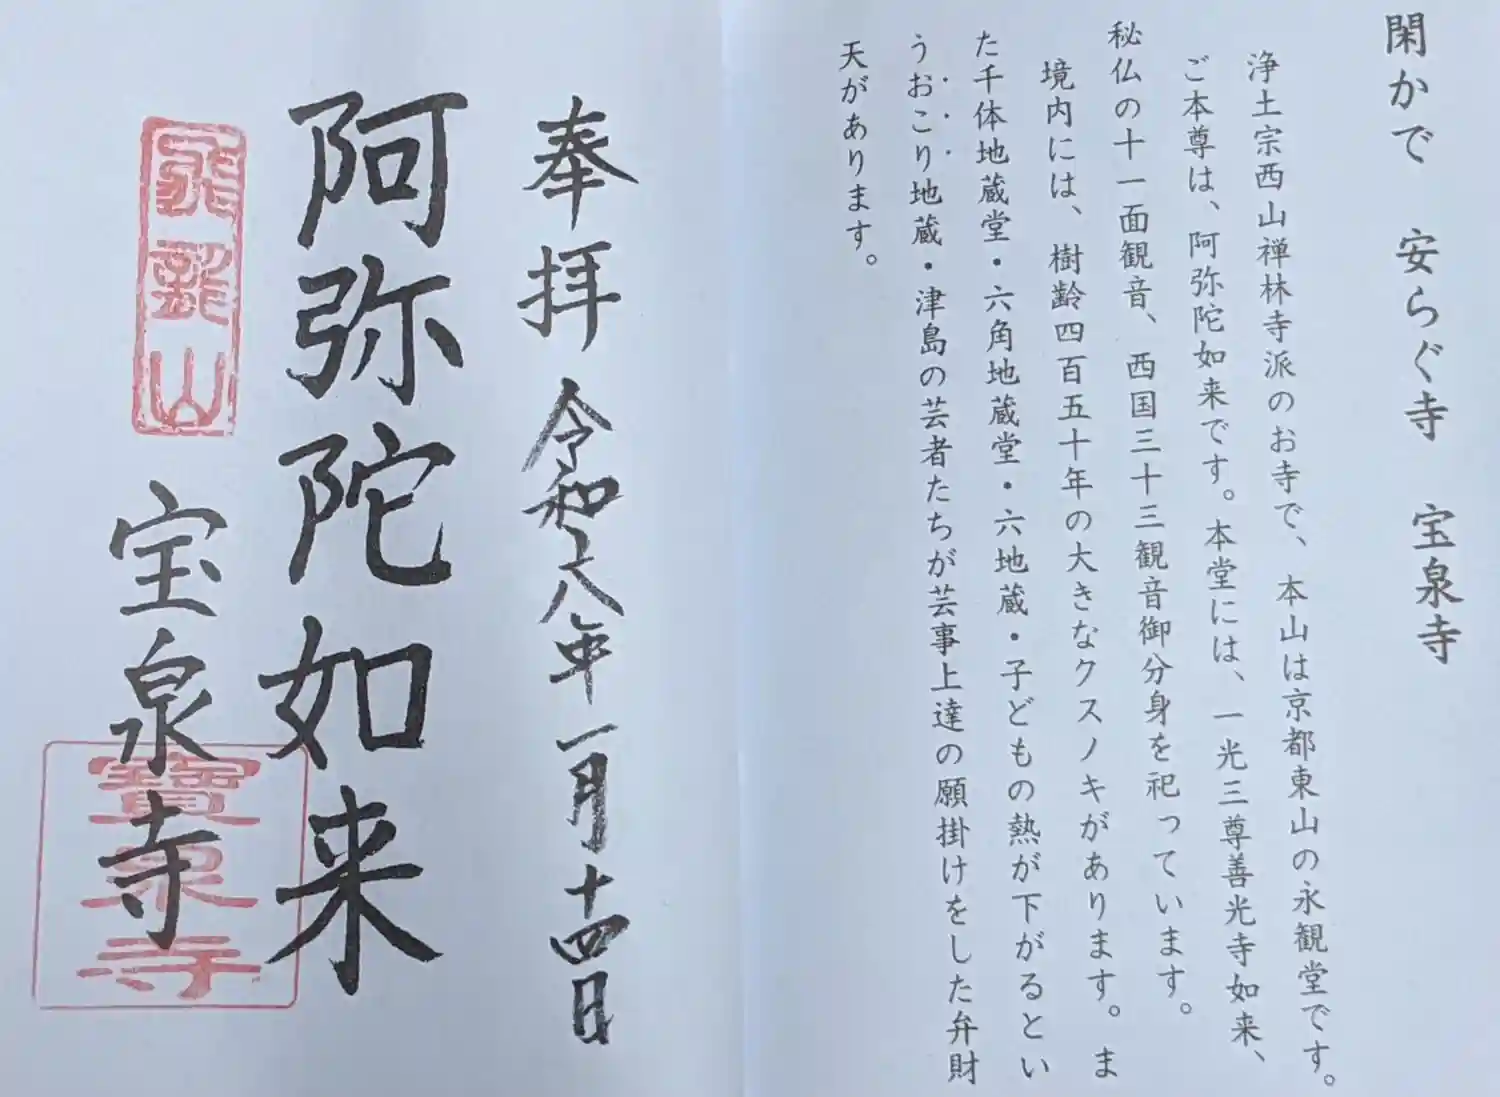 閑かで　安らぐ寺　宝泉寺
浄土宗西山禅林寺派のお寺で、本山は京都東山の永観堂です。
ご本尊は、阿弥陀如来です。本堂には、一光三尊善光寺如来、
秘仏の十一面観音、西国三十三観音御分身を祀っています。
境内には、樹齢四百五十年の大きなクスノキがあります。ま
た千体地蔵堂・六角地蔵堂・六地蔵・子どもの熱が下がるとい
うおこり地蔵・津島の芸者たちが芸事上達の願掛けをした弁財
天があります。
奉拝 令和八年一月十四日
阿弥陀如来
宝泉寺
寶泉寺